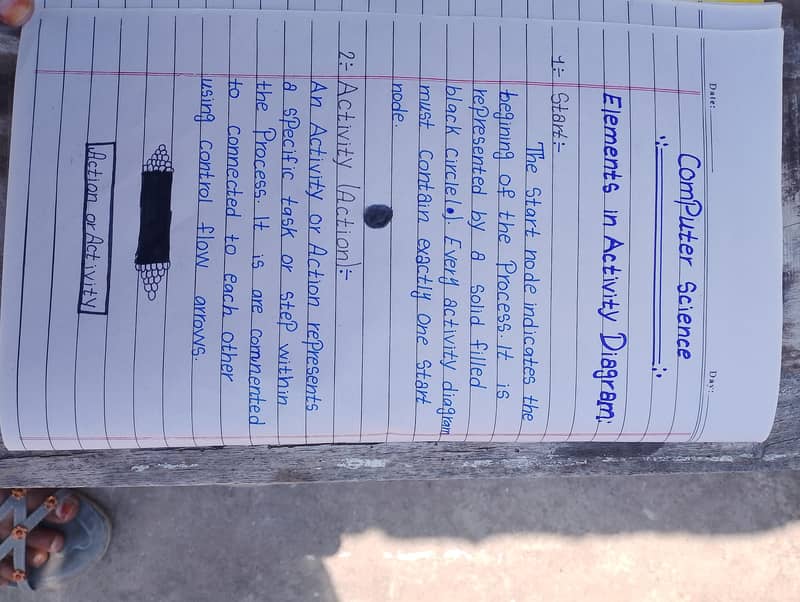 Date:
Day:
ComPuter Science
Elements in Activity Diagram:
1:- Start:-
The Start node indicates the
begining of the Process. It is
represented by a Solid filled
black circle(●). Every activity diagram
must Contain exactly one Start
node.
2:- Activity (Action):-
An Activity or Action rePresents
a specific task or steP within
the Process. It is are comnented
to connected to each other
using control flow arrows.
Action or Activity